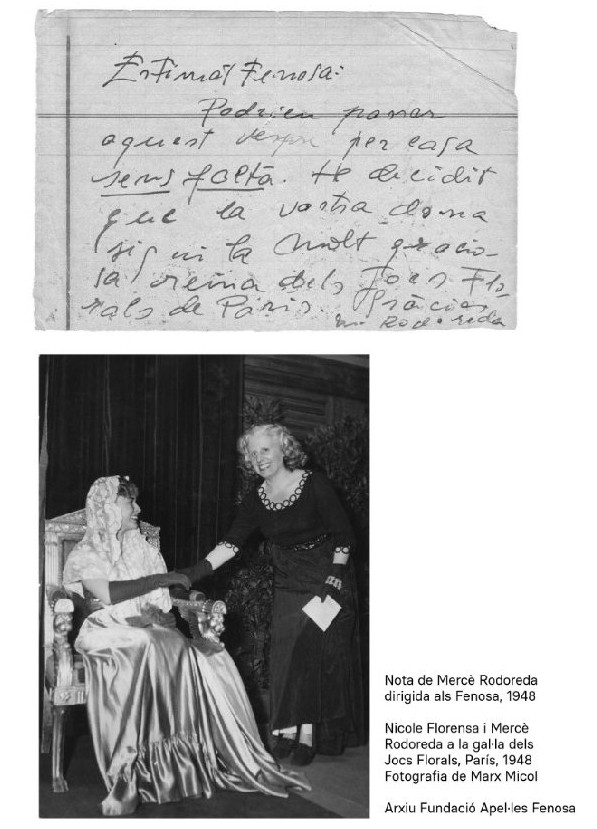 Estimat Fenosa:
Podrieu passar
aquest vespre per casa
sens falta. He decidit
que la vostra dona
sigui la molt gracio-
sa reina dels Jocs Flo-
rals de Paris. Gràcies
M. Rodoreda
Nota de Mercè Rodoreda
dirigida als Fenosa, 1948
Nicole Florensa i Mercè
Rodoreda a la gal·la dels
Jocs Florals, París, 1948
Fotografia de Marx Micol
Arxiu Fundació Apel·les Fenosa